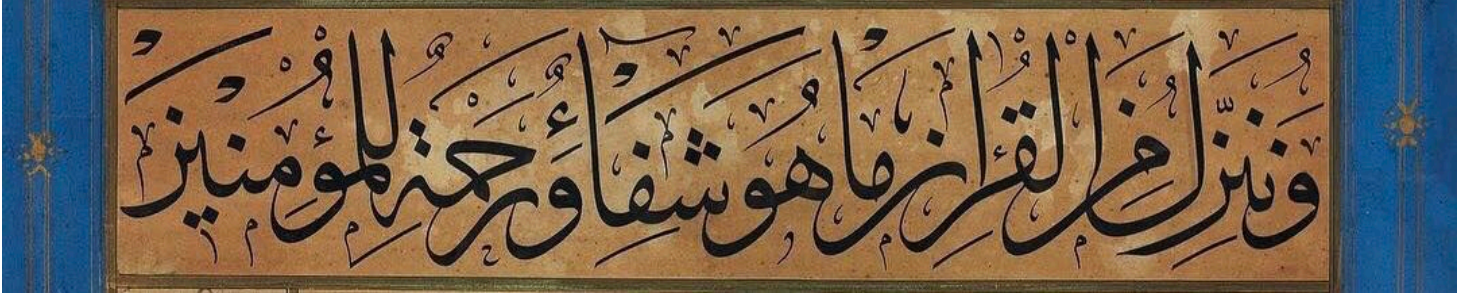 وَنُنَزِّلُ مِنَ الْقُرْاٰنِ مَا هُوَ شِفَاۤءٌ وَرَحْمَةٌ لِلْمُؤْمِنِينَ